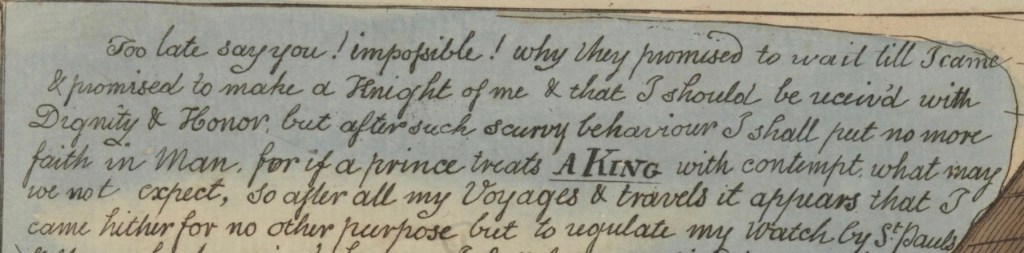 Too late say you! impoſsible! why they promised to wait till I came
& promised to make a Knight of me & that I should be receiv'd with
Dignity & Honor, but after such scurvy behaviour I shall put no more
faith in Man, for if a prince treats A KING with contempt, what may
we not expect, so after all my Voyages & travels it appears that I
came hither for no other purpose but to regulate my Watch by St. Pauls